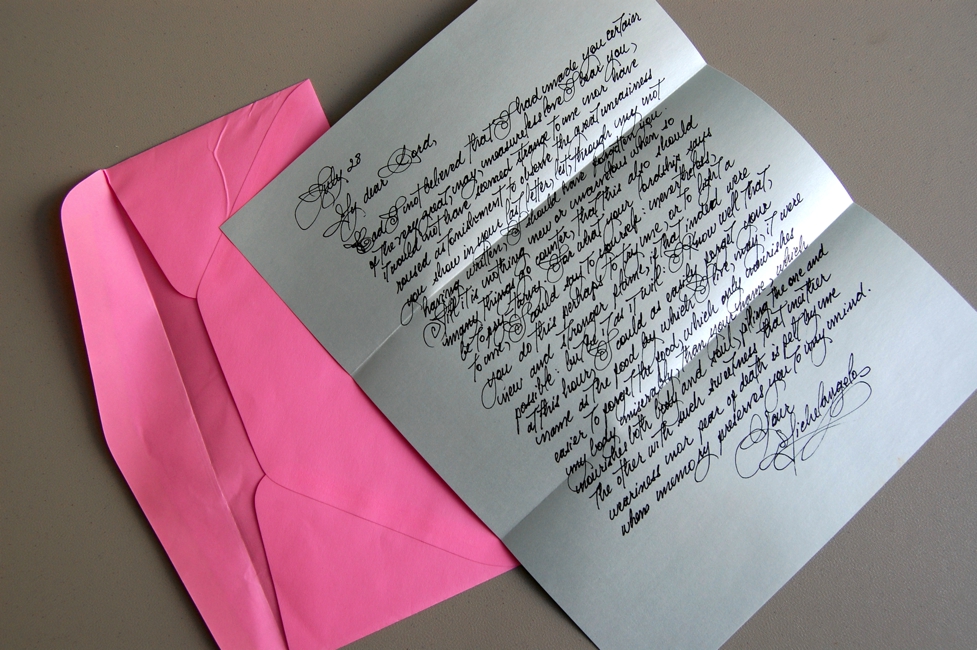 July 28
My dear Lord,
Had I not believed that I had made you certain
of the very great, nay, measureless love I bear you,
it would not have seemed strange to me nor have
roused astonishment to observe the great uneasiness
you show in your last letter, lest, through my not
having written, I should have forgotten you.
Still it is nothing new or marvellous when so
many things go counter, that this also should
be topsy-turvy. For what your lordship says
to me, I could say to yourself: nevertheless
you do this perhaps to try me, or to light a
new and stronger flame, if that indeed were
possible: but be it as it wills: I know well that,
at this hour, I could as easily forget your
name as the food by which I live; nay, it were
easier to forget the food, which only nourishes
my body miserably, than your name, which
nourishes both body and soul, filling the one and
the other with such sweetness that neither
weariness nor fear of death is felt by me
when memory preserves you to my mind.
Your
Michelangelo